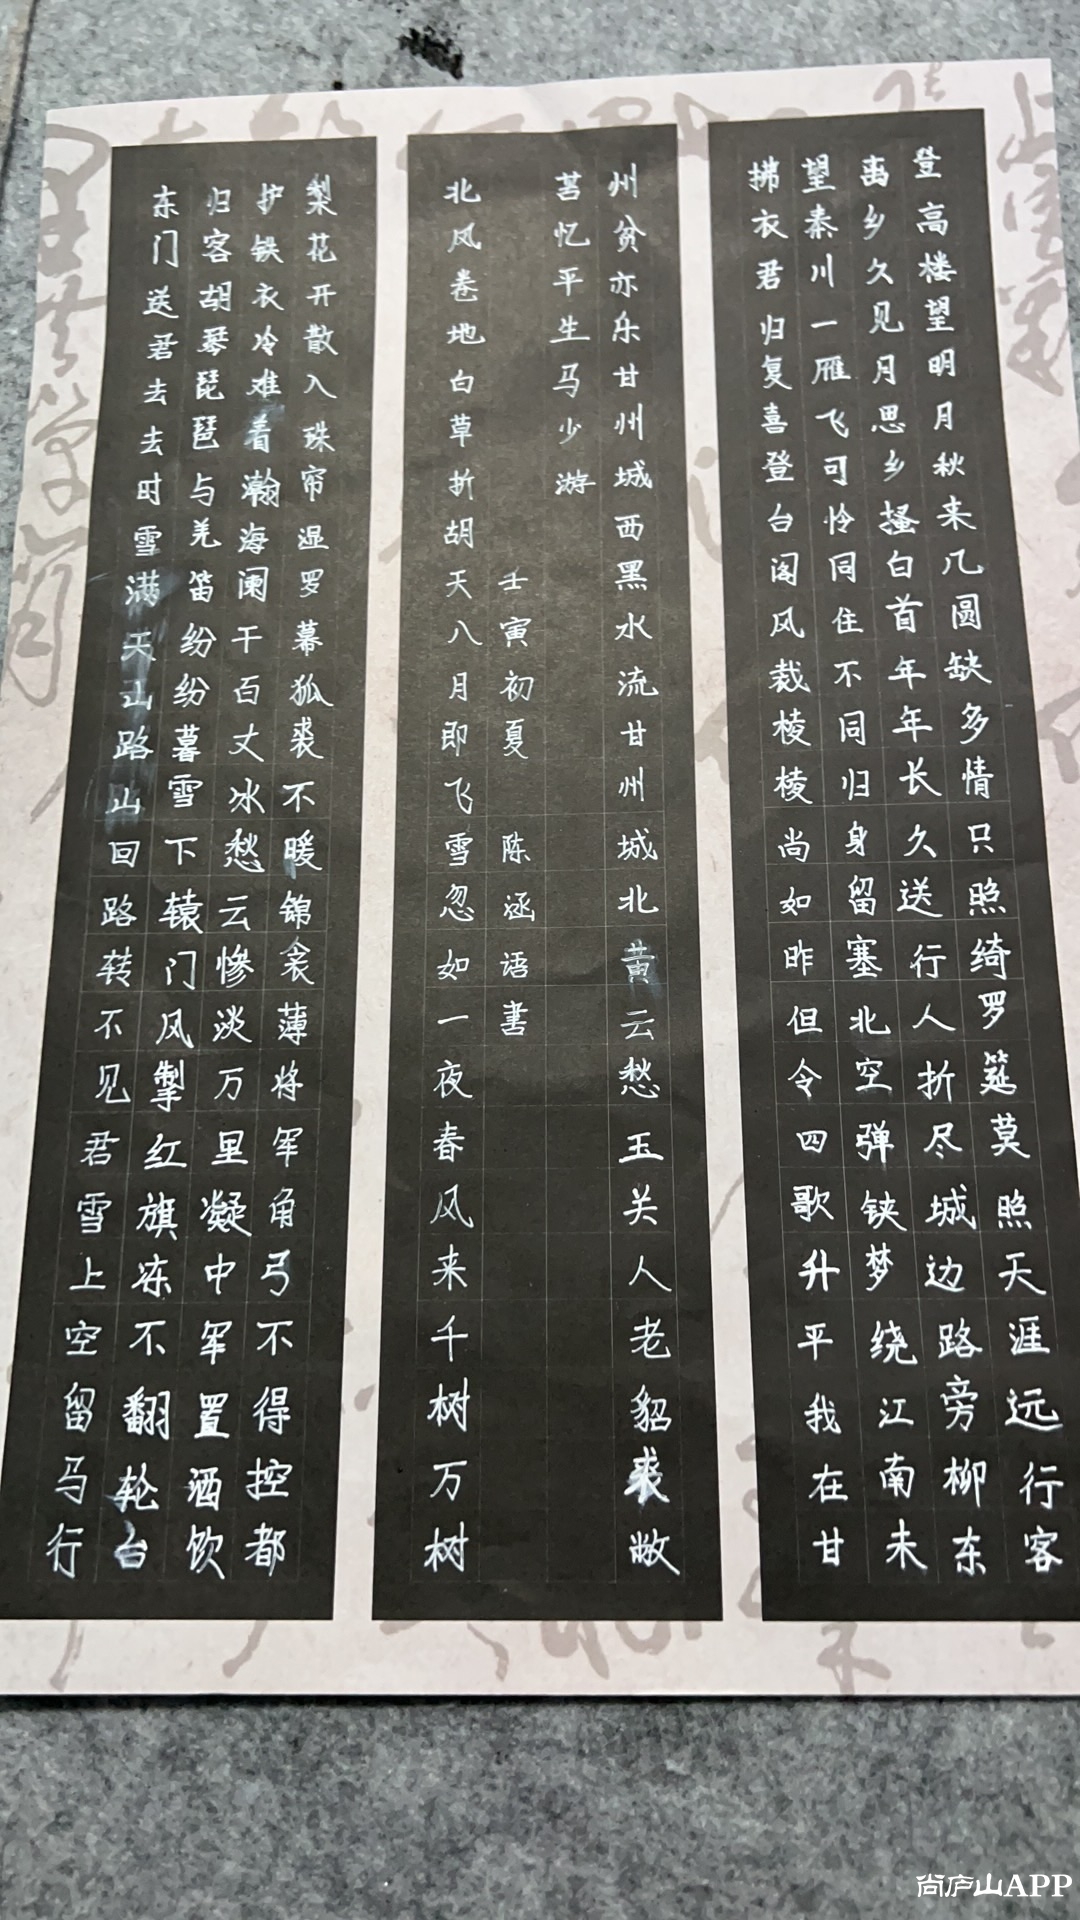 登高楼望明月秋来几圆缺多情只照绮罗筵莫照天涯远行客
离乡久见月思乡搔白首年年长久送行人折尽城边路旁柳东
望秦川一雁飞可怜同住不同归身留塞北空弹铗梦绕江南未
拂衣君归复喜登台阁风裁棱棱尚如昨但令四歌升平我在甘
州贫亦乐甘州城西黑水流甘州城北黄云愁玉关人老貂裘敝
苦忆平生马少游
壬寅初夏 陈涵语书
北风卷地白草折胡天八月即飞雪忽如一夜春风来千树万树
梨花开散入珠帘湿罗幕狐裘不暖锦衾薄将军角弓不得控都
护铁衣冷难着瀚海阑干百丈冰愁云惨淡万里凝中军置酒饮
归客胡琴琵琶与羌笛纷纷暮雪下辕门风掣红旗冻不翻轮台
东门送君去去时雪满天山路山回路转不见君雪上空留马行
尚庐山APP